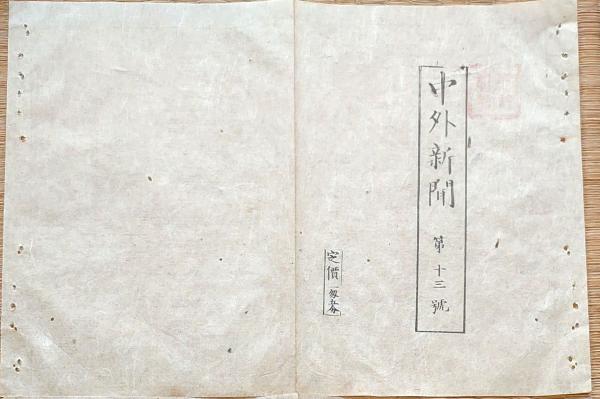 中外新聞 第十三號
定價